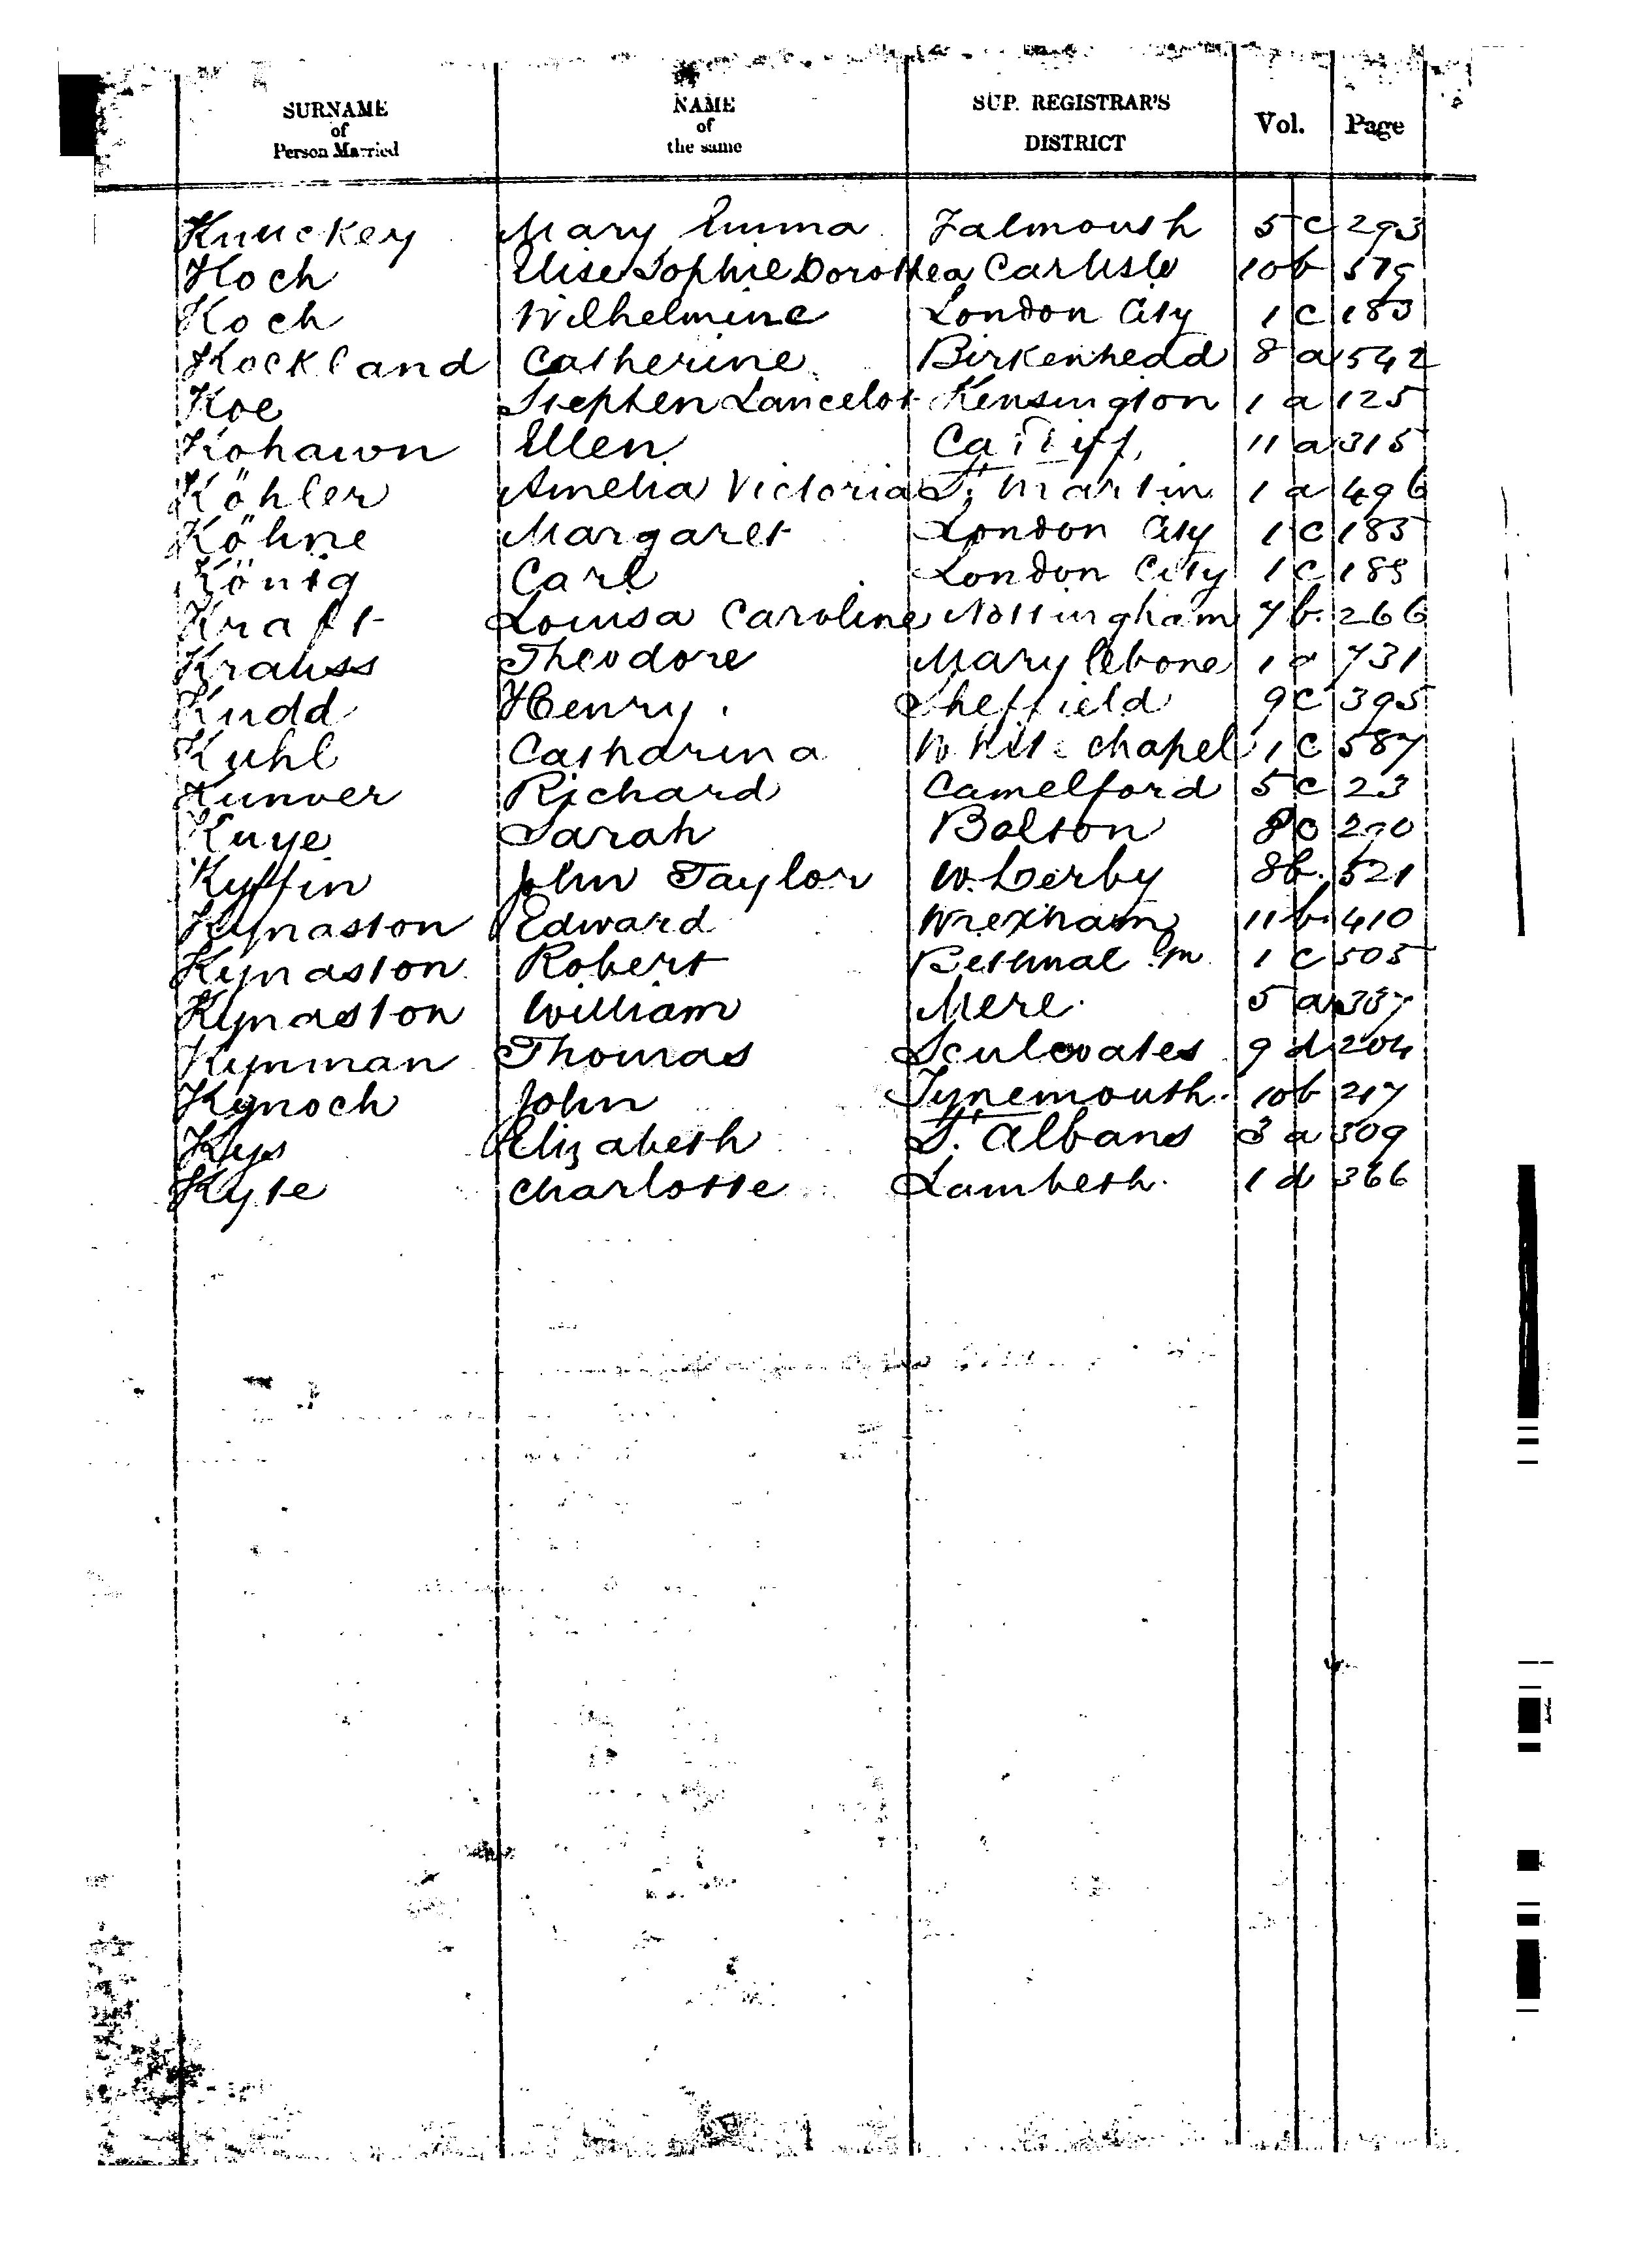 SURNAME of Person Married NAME of the same SUP. REGISTRAR'S DISTRICT Vol. Page
Knuckey Mary Emma Falmouth 5 c 293
Koch Elise Sophie Dorothea Carlisle 10 b 579
Koch Wilhelmine London City 1 c 183
Kockland Catherine Birkenhead 8 a 542
Koe Stephen Lancelot Kensington 1 a 125
Kohawn Ellen Cardiff 11 a 315
Köhler Amelia Victoria St. Martin 1 a 496
Köhne Margaret London City 1 c 185
König Carl London City 1 c 189
Kraft Louisa Caroline Nottingham 7 b. 266
Krauss Theodore Marylebone 1 a 731
Kudd Henry. Sheffield 9 c 395
Kuhl Catharina White chapel 1 c 587
Kunver Richard Camelford 5 c 23
Kuye Sarah Bolton 8 c 290
Kyffin John Taylor W. Derby 8 b. 521
Kynaston Edward Wrexham 11 b. 410
Kynaston Robert Bethnal Gn 1 c 505
Kynaston William Mere. 5 a 337
Kynman Thomas Sculcoates 9 d 204
Kynoch John Tynemouth. 10 b 217
Kys Elizabeth St. Albans 3 a 309
Kyte Charlotte Lambeth. 1 d 366